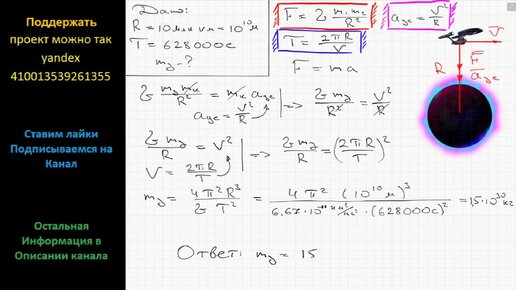 Поддержать
проект можно так
yandex
410013539261355
Ставим лайки
Подписываемся на
Канал
Остальная
Информация в
Описании канала
Дано:
R = 10 млн км = 10¹⁰ м
T = 628000 c
m_y - ?
F = G m₁m₂/R²
a_yc = V²/R
T = 2πR/V
F = ma
G m_y m_к/R² = m_к a_yc
a_yc = V²/R
=> G m_y/R² = V²/R
G m_y/R = V²
V = 2πR/T
=> G m_y/R = (2πR/T)²
m_y = 4π²R³/G T² = 4π² (10¹⁰ м)³/6,67·10⁻¹¹ нм²/кг² · (628000 c)² = 15·10³⁰ кг
Ответ: m_y = 15
V
R
F
a_yc